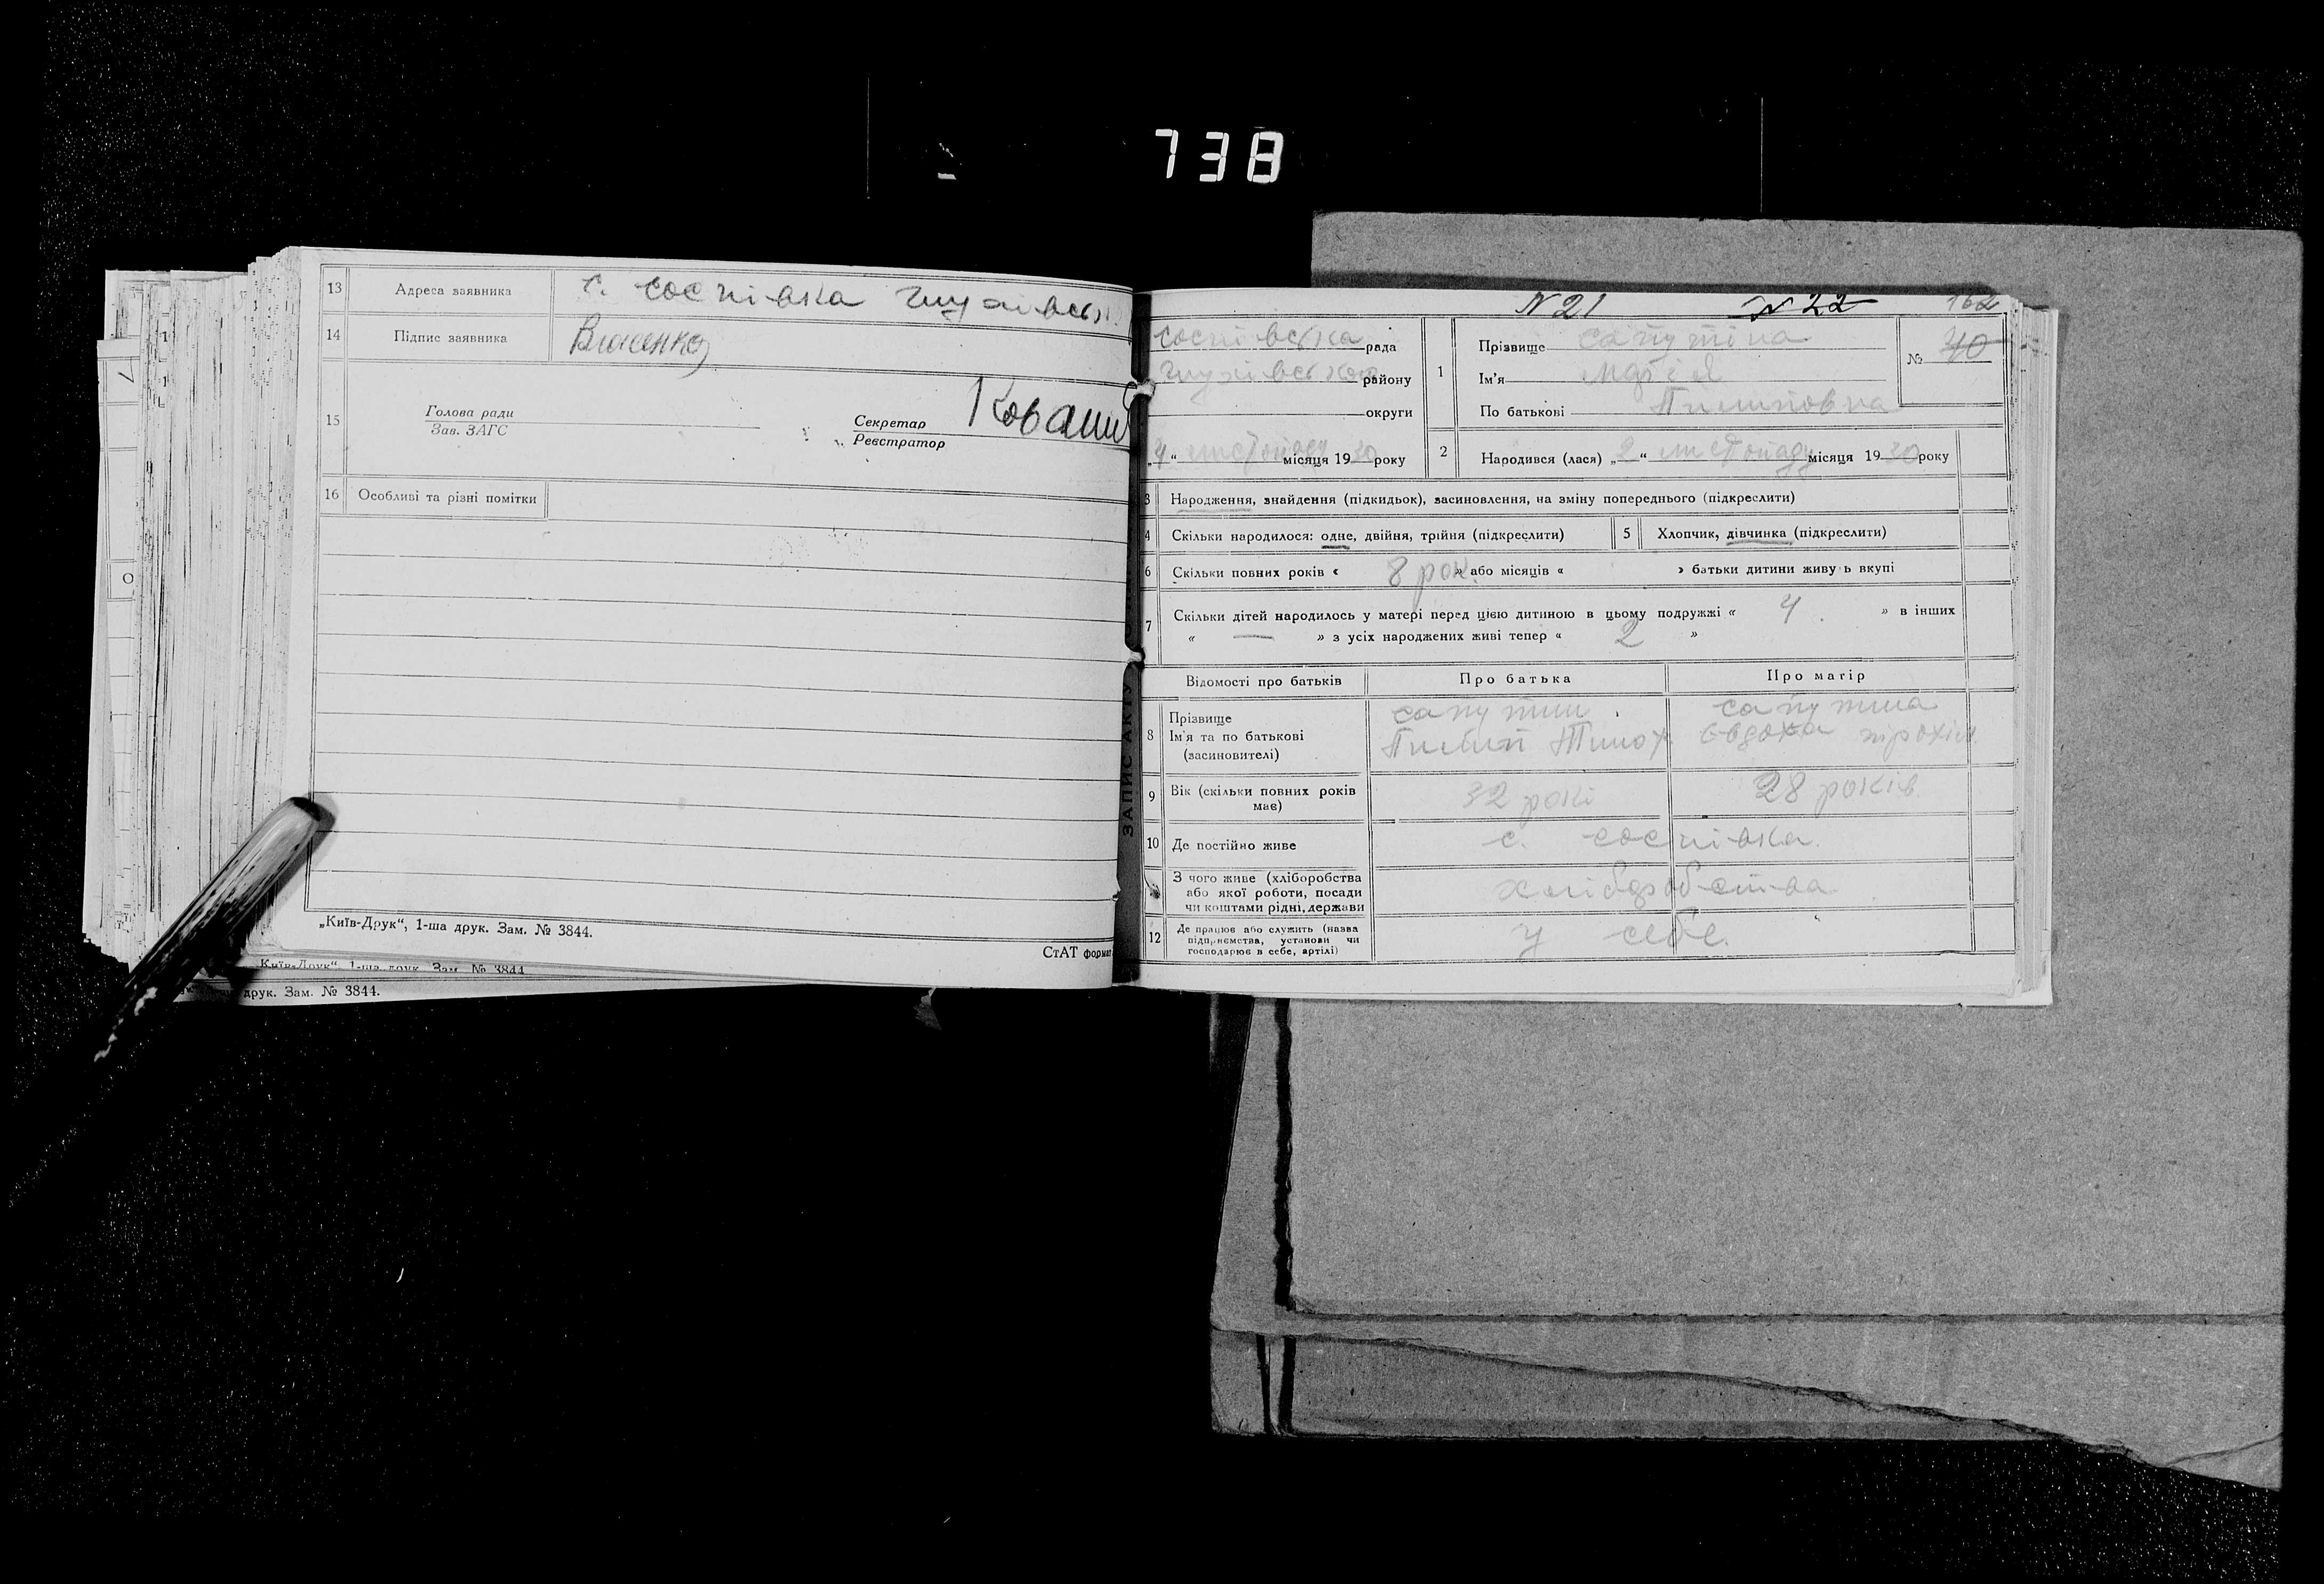 738
13 Адреса заявника с. соснівка глухівськ.
14 Підпис заявника Власенко
15 Голова ради
Зав. ЗАГС
Секретар
Реєстратор
16 Особливі та різні помітки
„Київ-Друк“, 1-ша друк. Зам. № 3844.
СтАТ формат
Київ-Друк“, 1-ша друк. Зам. № 3844
друк. Зам. № 3844.
ЗАПИС АКТУ
N 21 N 22 162
соснівська рада
глухівського району
округи
„4“ листопаду місяця 1930 року
1 Прізвище сапутіна
Ім'я марія
По батькові Пилиповна
№ 40
2 Народився (лася) „2“ листопаду місяця 1930 року
3 Народження, знайдення (підкидьок), засиновлення, на зміну попереднього (підкреслити)
4 Скільки народилося: одне, двійня, трійня (підкреслити) 5 Хлопчик, дівчинка (підкреслити)
6 Скільки повних років « 8 рок. » або місяців « » батьки дитини живуть вкупі
7 Скільки дітей народилось у матері перед цією дитиною в цьому подружжі « 4. » в інших
« — » з усіх народжених живі тепер « 2 »
Відомості про батьків Про батька Про матір
8 Прізвище сапутин сапутина
Ім'я та по батькові Пилип Тимох. Євдоха трохім.
(засиновителі)
9 Вік (скільки повних років має) 32 рокі 28 років.
10 Де постійно живе с. соснівка.
З чого живе (хліборобства
або якої роботи, посади
чи коштами рідні, держави хліборобства
12 Де працює або служить (назва
підприємства, установи чи
господарює в себе, артілі) у себе.